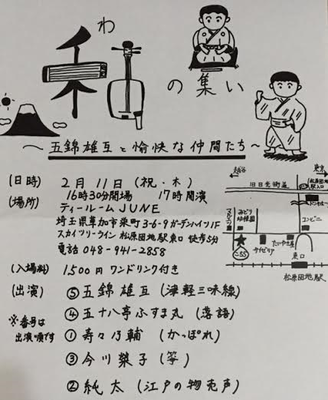 わ
和
の集い
～五錦雄互と愉快な仲間たち～
(日時) 2月11日(祝・木)
16時30分開場 17時開演
(場所) ティールームJUNE
埼玉県草加市栄町3-6-9ガーデンハイツ1F
スカイツリーライン 松原団地駅東口 徒歩3分
電話 048-941-2858
(入場料) 1500円 ワンドリンク付き
(出演) ⑤五錦雄互 (津軽三味線)
④五十八亭ふすま丸 (落語)
※番号は
出演順です
①寿々乃輔 (かっぽれ)
③今川葉子 (箏)
②純太 (江戸の物売声)
越谷
草加
旧日光街道
コンビニ
東口
松原団地駅